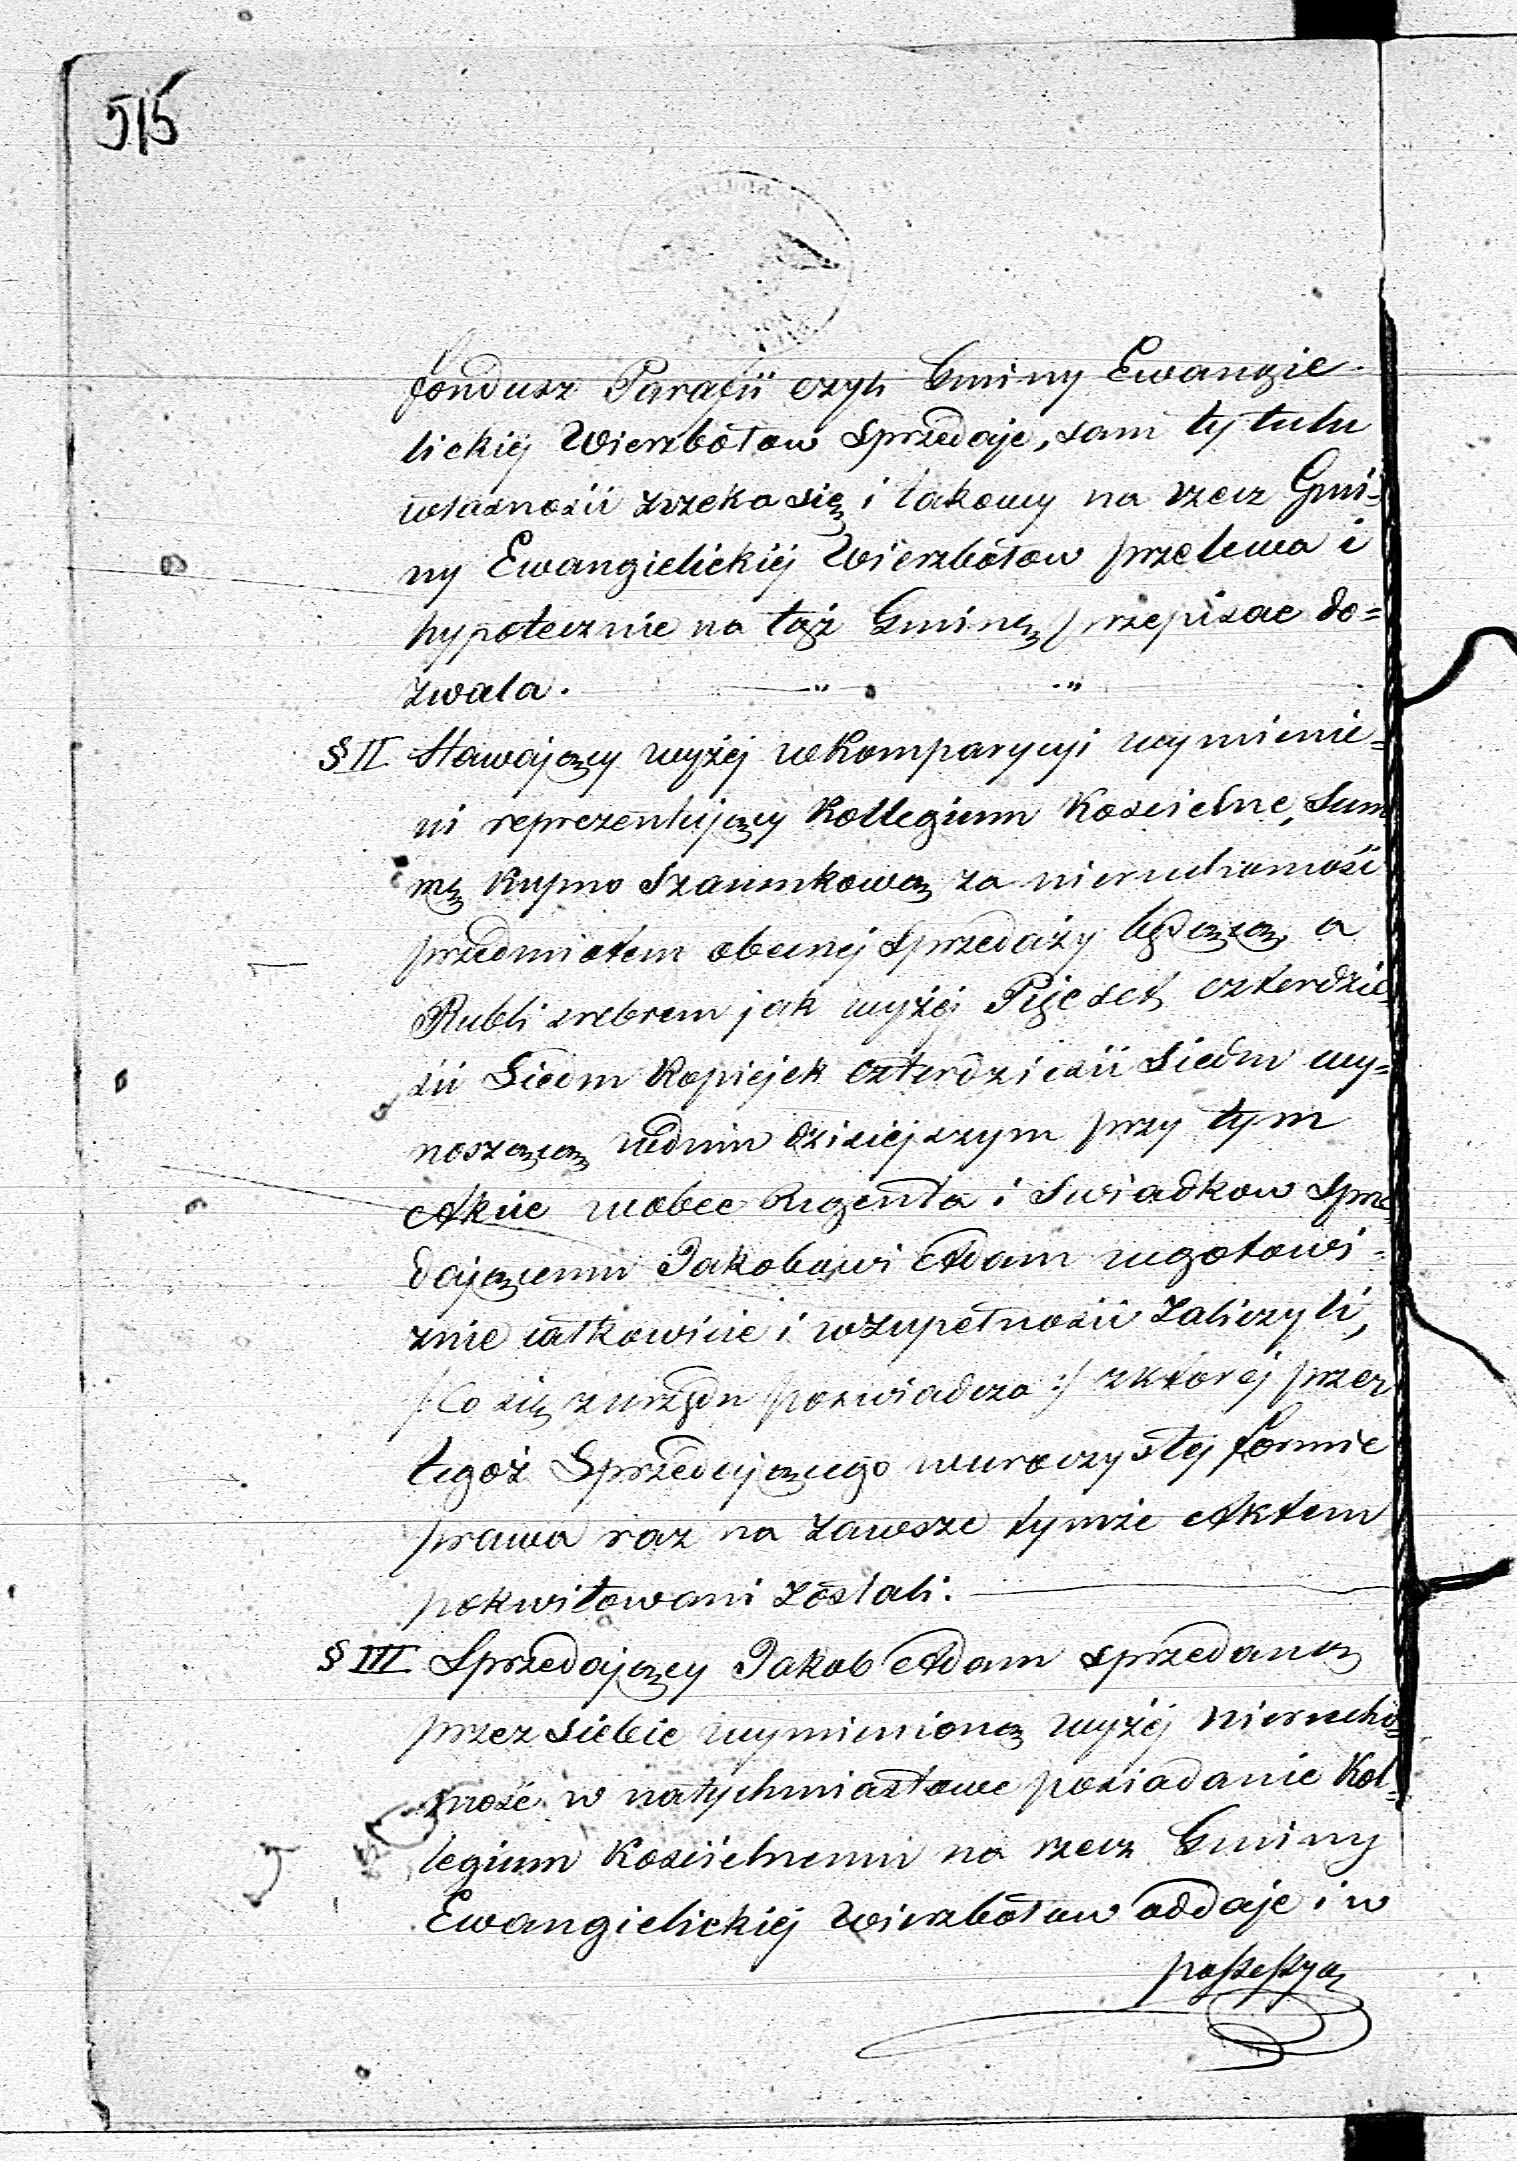 515
fondusz Parafii czyli Gminy Ewangie-
lickiej Wierzbołow sprzedaje, sam tytułu
własności zrzeka się i takowy na rzecz Gmi-
ny Ewangielickiej Wierzbołow przelewa i
hypotecznie na tąż Gminę przepisać do=
zwala.
§ II Stawający wyżej w Komparycyi wymienie=
ni reprezentujący Kollegium Kościelne, Sum
mę Kupno Szacunkową za nieruchomość
przedmiotem obecnej Sprzedaży będącą, a
Rubli srebrem jak wyżej Pięćset czterdzie
ści Siedm Kopiejek czterdzieści Siedm wy=
noszącą wdniu dzisiejszym przy tym
Akcie wobec Regenta i Swiadkow Sprze
dającemu Jakobowi Adam wgotowi=
znie całkowicie i wzupełności zaliczyli,
/: Co się z urzędu poswiadcza :/ z ktorej przez
tegoż Sprzedającego wuroczystej formie
prawa raz na zawsze tymże Aktem
pokwitowani zostali.
§ III Sprzedający Jakob Adam sprzedaną
przez siebie wymienioną wyżej nierucho=
mość w natychmiastowe posiadanie Kol=
legium Kościelnemu na rzecz Gminy
Ewangielickiej Wierzbołow oddaje i w
possessyą